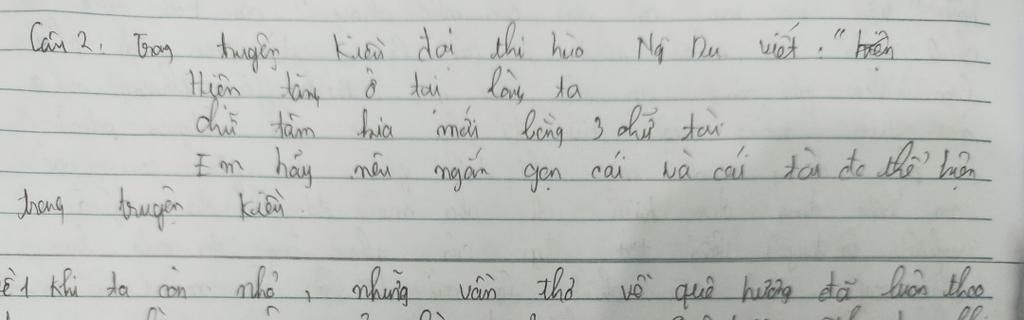 Câu 2. Trong truyện Kiều đại thi hào Ng Du viết: "
Hiện tâm ở tại lòng ta
chữ tâm kia mới bằng 3 chữ tài
Em hãy nêu ngắn gọn cái và cái tài đc thể hiện
trong truyện Kiều.
khi ta còn nhỏ, những vần thơ về quê hương đã luôn theo